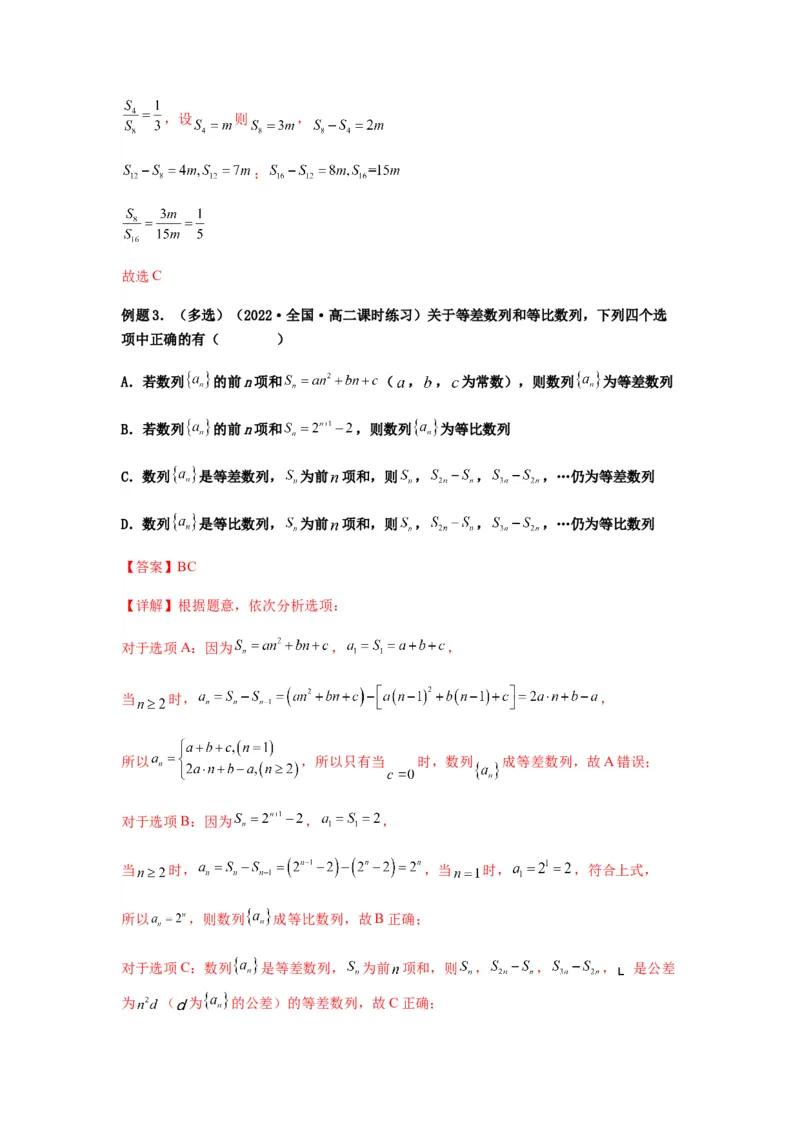 S₄/S₈ = 1/3，设S₄ = m则S₈ = 3m，S₈ − S₄ = 2m
S₁₂ − S₈ = 4m, S₁₂ = 7m；S₁₆ − S₁₂ = 8m, S₁₆=15m
S₈/S₁₆ = 3m/15m = 1/5
故选C
例题3.（多选）（2022·全国·高二课时练习）关于等差数列和等比数列，下列四个选
项中正确的有（ ）
A．若数列{aₙ}的前n项和Sₙ = an² + bn + c（a，b，c为常数），则数列{aₙ}为等差数列
B．若数列{aₙ}的前n项和Sₙ = 2ⁿ⁺¹ − 2，则数列{aₙ}为等比数列
C．数列{aₙ}是等差数列，Sₙ为前n项和，则Sₙ，S₂ₙ − Sₙ，S₃ₙ − S₂ₙ，…仍为等差数列
D．数列{aₙ}是等比数列，Sₙ为前n项和，则Sₙ，S₂ₙ − Sₙ，S₃ₙ − S₂ₙ，…仍为等比数列
【答案】BC
【详解】根据题意，依次分析选项：
对于选项A：因为Sₙ = an² + bn + c，a₁ = S₁ = a + b + c，
当n ≥ 2时，aₙ = Sₙ − Sₙ₋₁ = (an² + bn + c) − [a(n−1)² + b(n−1) + c] = 2a·n + b − a，
所以aₙ = {a + b + c, (n = 1) 2a·n + b − a, (n ≥ 2)，所以只有当c = 0时，数列{aₙ}成等差数列，故A错误；
对于选项B：因为Sₙ = 2ⁿ⁺¹ − 2，a₁ = S₁ = 2，
当n ≥ 2时，aₙ = Sₙ − Sₙ₋₁ = (2ⁿ⁻¹ − 2) − (2ⁿ − 2) = 2ⁿ，当n = 1时，a₁ = 2¹ = 2，符合上式，
所以aₙ = 2ⁿ，则数列{aₙ}成等比数列，故B正确；
对于选项C：数列{aₙ}是等差数列，Sₙ为前n项和，则Sₙ，S₂ₙ − Sₙ，S₃ₙ − S₂ₙ，L 是公差
为n2d（d为{aₙ}的公差）的等差数列，故C正确；